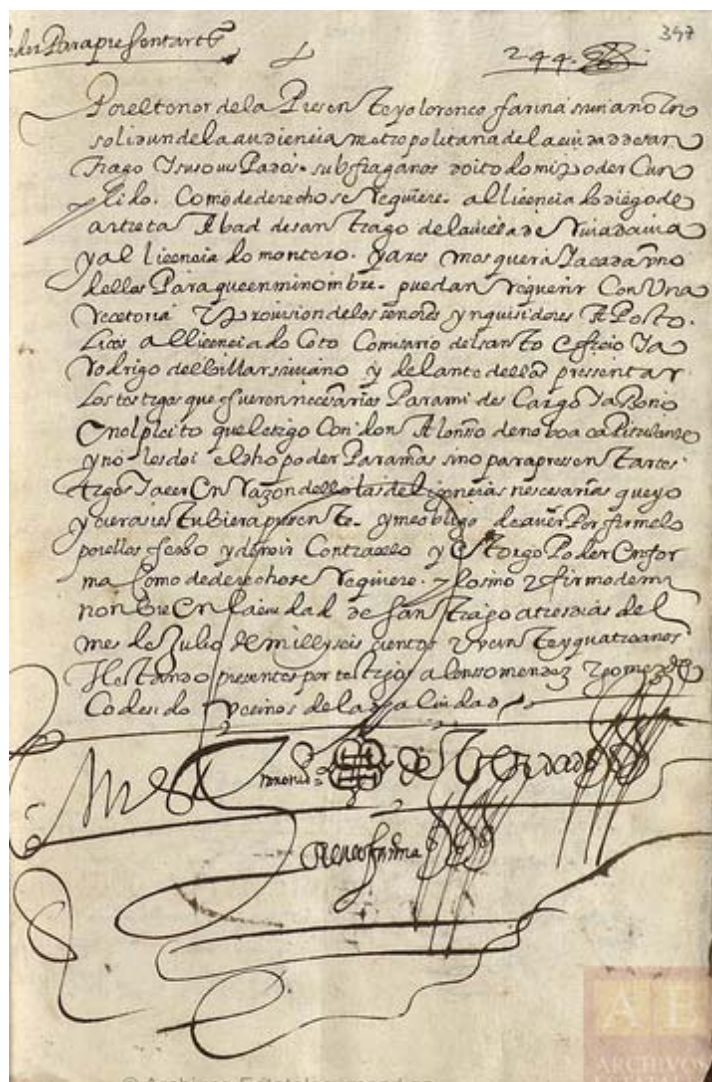 Poder Para presentar tº
347
244.
Por el tenor de la Presente yo lorenco farina scriuano In
solidun de la audiencia metropolitana de la ciudad de san
tiago y sus ouispados subfraganos doi todo mi poder Cun
plido. Como de derecho se Requiere. al licenciado diego de
arteta Abad de santiago de la
y al licenciado montero. y ares mosquera y a cada vno
dellos Para que en mi nombre. puedan Requerir Con Una
Recetoria y Provision de los señores ynquisidores A Posto
licos al licenciado Coto Comisario del santo oficio y a
Rodrigo del billar scriuano y delante dellos presentar
Los testigos que fueren necesarios Para mi des Cargo y abono
En el pleito que letigo Con don Alonso de noboa
y no les doi el dho poder Para mas sino para presentar tes
tigos y acer En Razon dello las deligencias nescesarias que yo
y ciera si estubiera presente. y me obligo de auer Por firme lo
por ellos fecho y de no ir Contra ello y Otorgo Poder En for
ma Como de derecho se Requiere. y lo sino y firmo de mi
nonbre En la ciudad de santiago a tres dias del
mes de Julio de mill y seis cientos y veinte y quatro anos
Hestando presentes por testigos alonsso mendez y gomez de
Codesido vecinos de la dha Ciudad
In testimonio de Verdad
lorenco farina
A E
ARCHIVOS
© Archivos Estatales